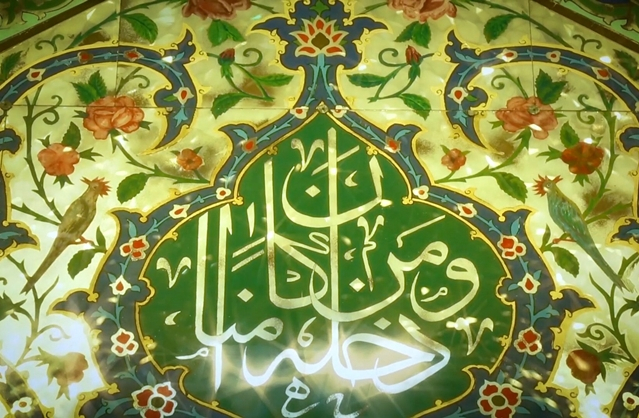 ومن دخله كان امنا